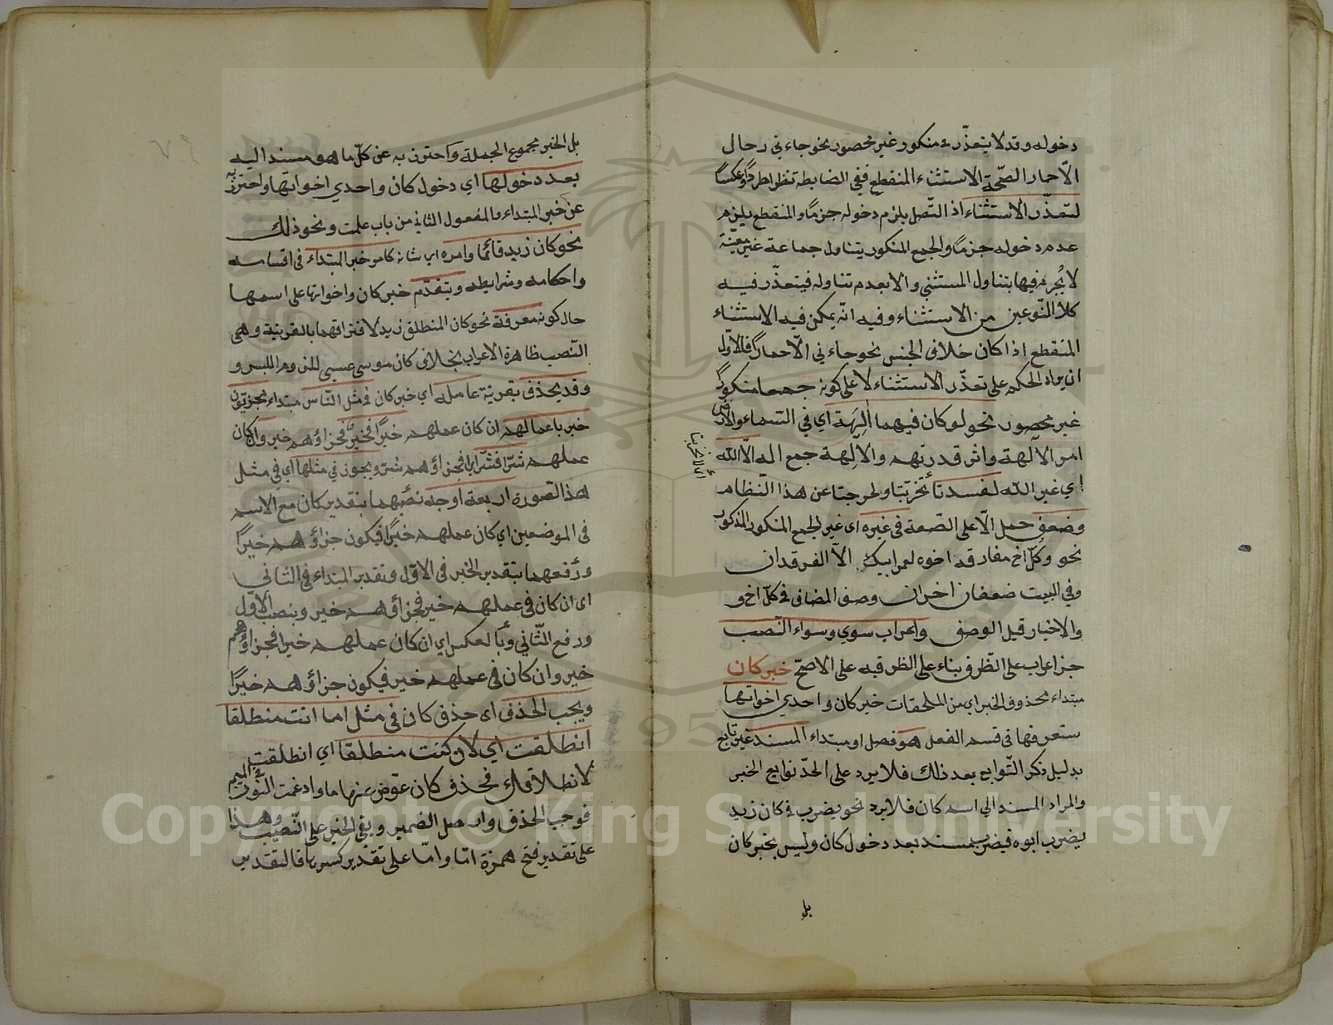 دخوله وقد لا يتعذر في منكور غير محصور نحو جاءني رجال
الا حمار الصحة الاستثناء المنقطع ففي الضابطة نظر اطرادا وعكسا
لتعذر الاستثناء اذ المتصل يلزم دخوله جزما والمنقطع يلزم
عدم دخوله جزما والجمع المنكور يتناول جماعة غير معينة
لا يجزم فيها بتناول المستثنى ولا بعدم تناوله فيتعذر فيه
كلا النوعين من الاستثناء وفيه انه يمكن فيه الاستثناء
المنقطع اذا كان خلاف الجنس نحو جاءني الا حمارا فالاولى
ان يراد الحكم على تعذر الاستثناء لا على كونه جمعا منكورا
غير محصور نحو لو كان فيهما الهة اي في السماء والارض
امر الآلهة واثر قدرتهم والآلهة جمع اله الا الله
اي غير الله لفسدتا لخربتا ولخرجتا عن هذا النظام
اي لخربتا
وضعف حمل الا على الصفة في غيره اي غير الجمع المنكور المذكور
نحو وكل اخ مفارقه اخوه لعمر ابيك الا الفرقدان
وفي البيت ضعفان اخران وصف المضاف في كل اخ و
والاخبار قبل الوصف واعراب سوى وسواء النصب
جز اعراب على الظرف بناء على الظرفية على الاصح خبر كان
مبتداء محذوف الخبر اي من الملحقات خبر كان واحدى اخواتها
ستعرفها في قسم الفعل هو فصل او مبتداء المسند غير تابع
بدليل ذكر التوابع بعد ذلك فلا يرد على الحد توابع الخبر
والمراد المسند الى اسم كان فلا يرد نحو يضرب في كان زيد
يضرب ابوه فيضرب مسند بعد دخول كان وليس بخبر كان
بل
بل الخبر مجموع الجملة واحترز به عن كل ما هو مسند اليه
بعد دخولها اي دخول كان واحدى اخواتها واحترز به
عن خبر المبتداء والمفعول الثاني من باب علمت ونحو ذلك
نحو كان زيد قائما وامره اي شانه كامر خبر المبتداء في اقسامه
واحكامه وشرايطه ويتقدم خبر كان واخواتها على اسمها
حال كونه معرفة نحو كان المنطلق زيد لافتراقهما بالقرينة وهى
النصب ظاهرة الاعراب بخلاف كان موسى عيسى للزوم اللبس و
وقد يحذف بقرينة عامله اي خبر كان في مثل الناس مبتداء مجزيون
خبر باعمالهم ان كان عملهم خيرا فخير فجزاؤهم خير وان كان
عملهم شرا فشر اي فجزاؤهم شر ويجوز في مثلها اي في مثل
هذا الصورة اربعة اوجه نصبهما بتقدير كان مع الاسم
في الموضعين اي كان عملهم خيرا فيكون جزاؤهم خيرا
ورفعهما بتقدير الخبر في الاول وتقدير المبتداء في الثاني
اى ان كان في عملهم خير فجزاؤهم خير وبنصب الاول
ورفع الثاني وبالعكس اي ان كان عملهم خيرا فجزاؤهم
خير وان كان في عملهم خير فيكون جزاؤهم خيرا
ويجب الحذف اى حذف كان في مثل اما انت منطلقا
انطلقت اي لان كنت منطلقا اي انطلقت
لانطلاقك فحذف كان عوض عنها ما وادغمت النون في الميم
فوجب الحذف وارصل الضمير وبقي الخبر على النصب وهذا
على تقدير فتح همزة اما واما على تقدير كسرها فالتقدير
Copyright © King Saud University
1957